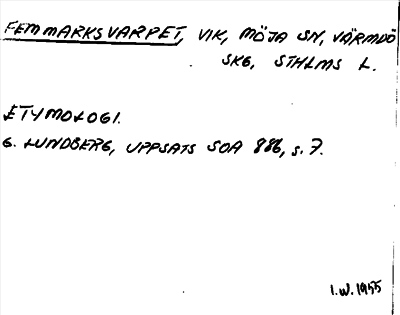 FEMMARKSVARPET, VIK, MÖJA SN, VÄRMDÖ
SKG, STHLMS L.
ETYMOLOGI.
G. LUNDBERG, UPPSATS SOA 886, s. 7.
I.W. 1955